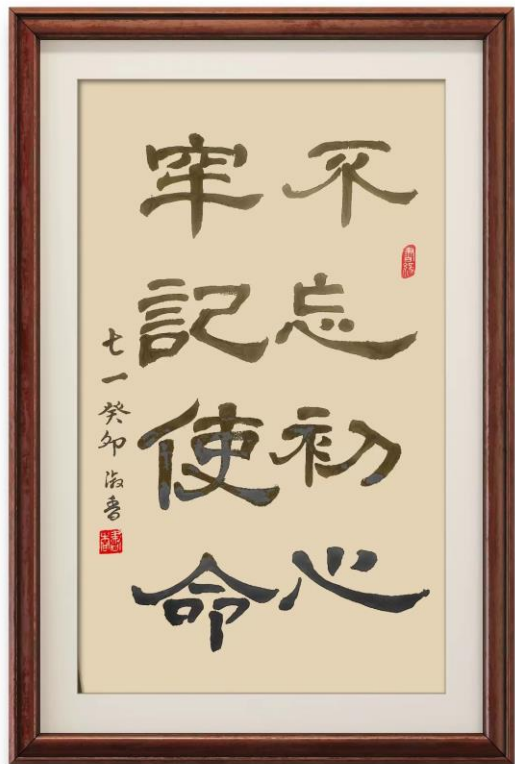 不忘初心
牢記使命
七一癸卯淑香